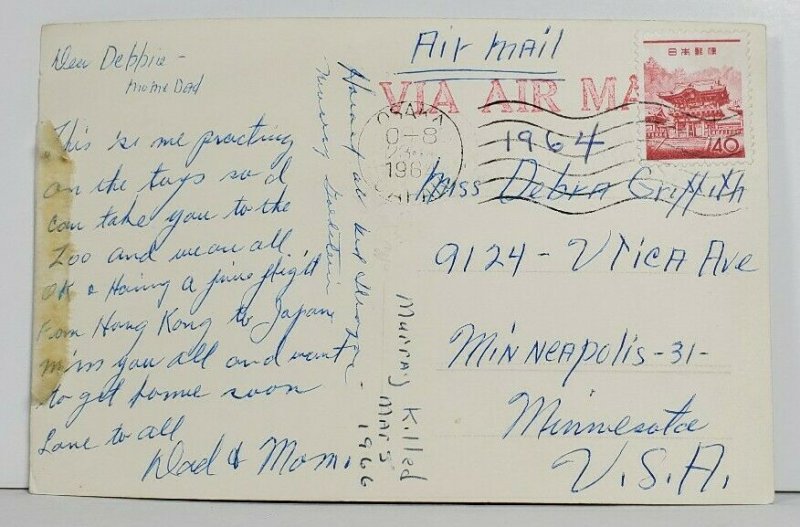 Dear Debbie -
Mom & Dad
This is me practing
on the toys so I
can take you to the
Zoo and we are all
OK & Having a fine flight
From Hong Kong to Japan
miss you all and want
to get home soon
Love to all
Dad & Mom.
Murray
Murray Killed
Mars
1966
Air Mail
VIA AIR MA
OSAKA
196
日本郵便
40
1964
Miss Debra Griffith
9124 - Utica Ave
Minneapolis - 31 -
Minnesota
U.S.A.